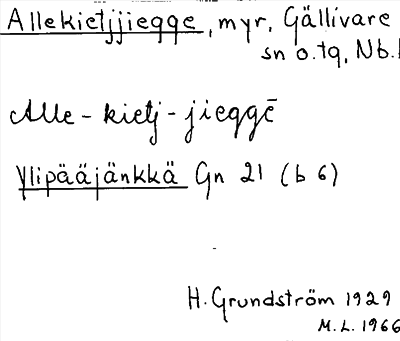 Allekietjjiegge, myr, Gällivare
sn o. tg, Nb.l
Alle - kietj - jieggē
Ylipääjänkkä Gn 21 (b 6)
H. Grundström 1929
M.L. 1966